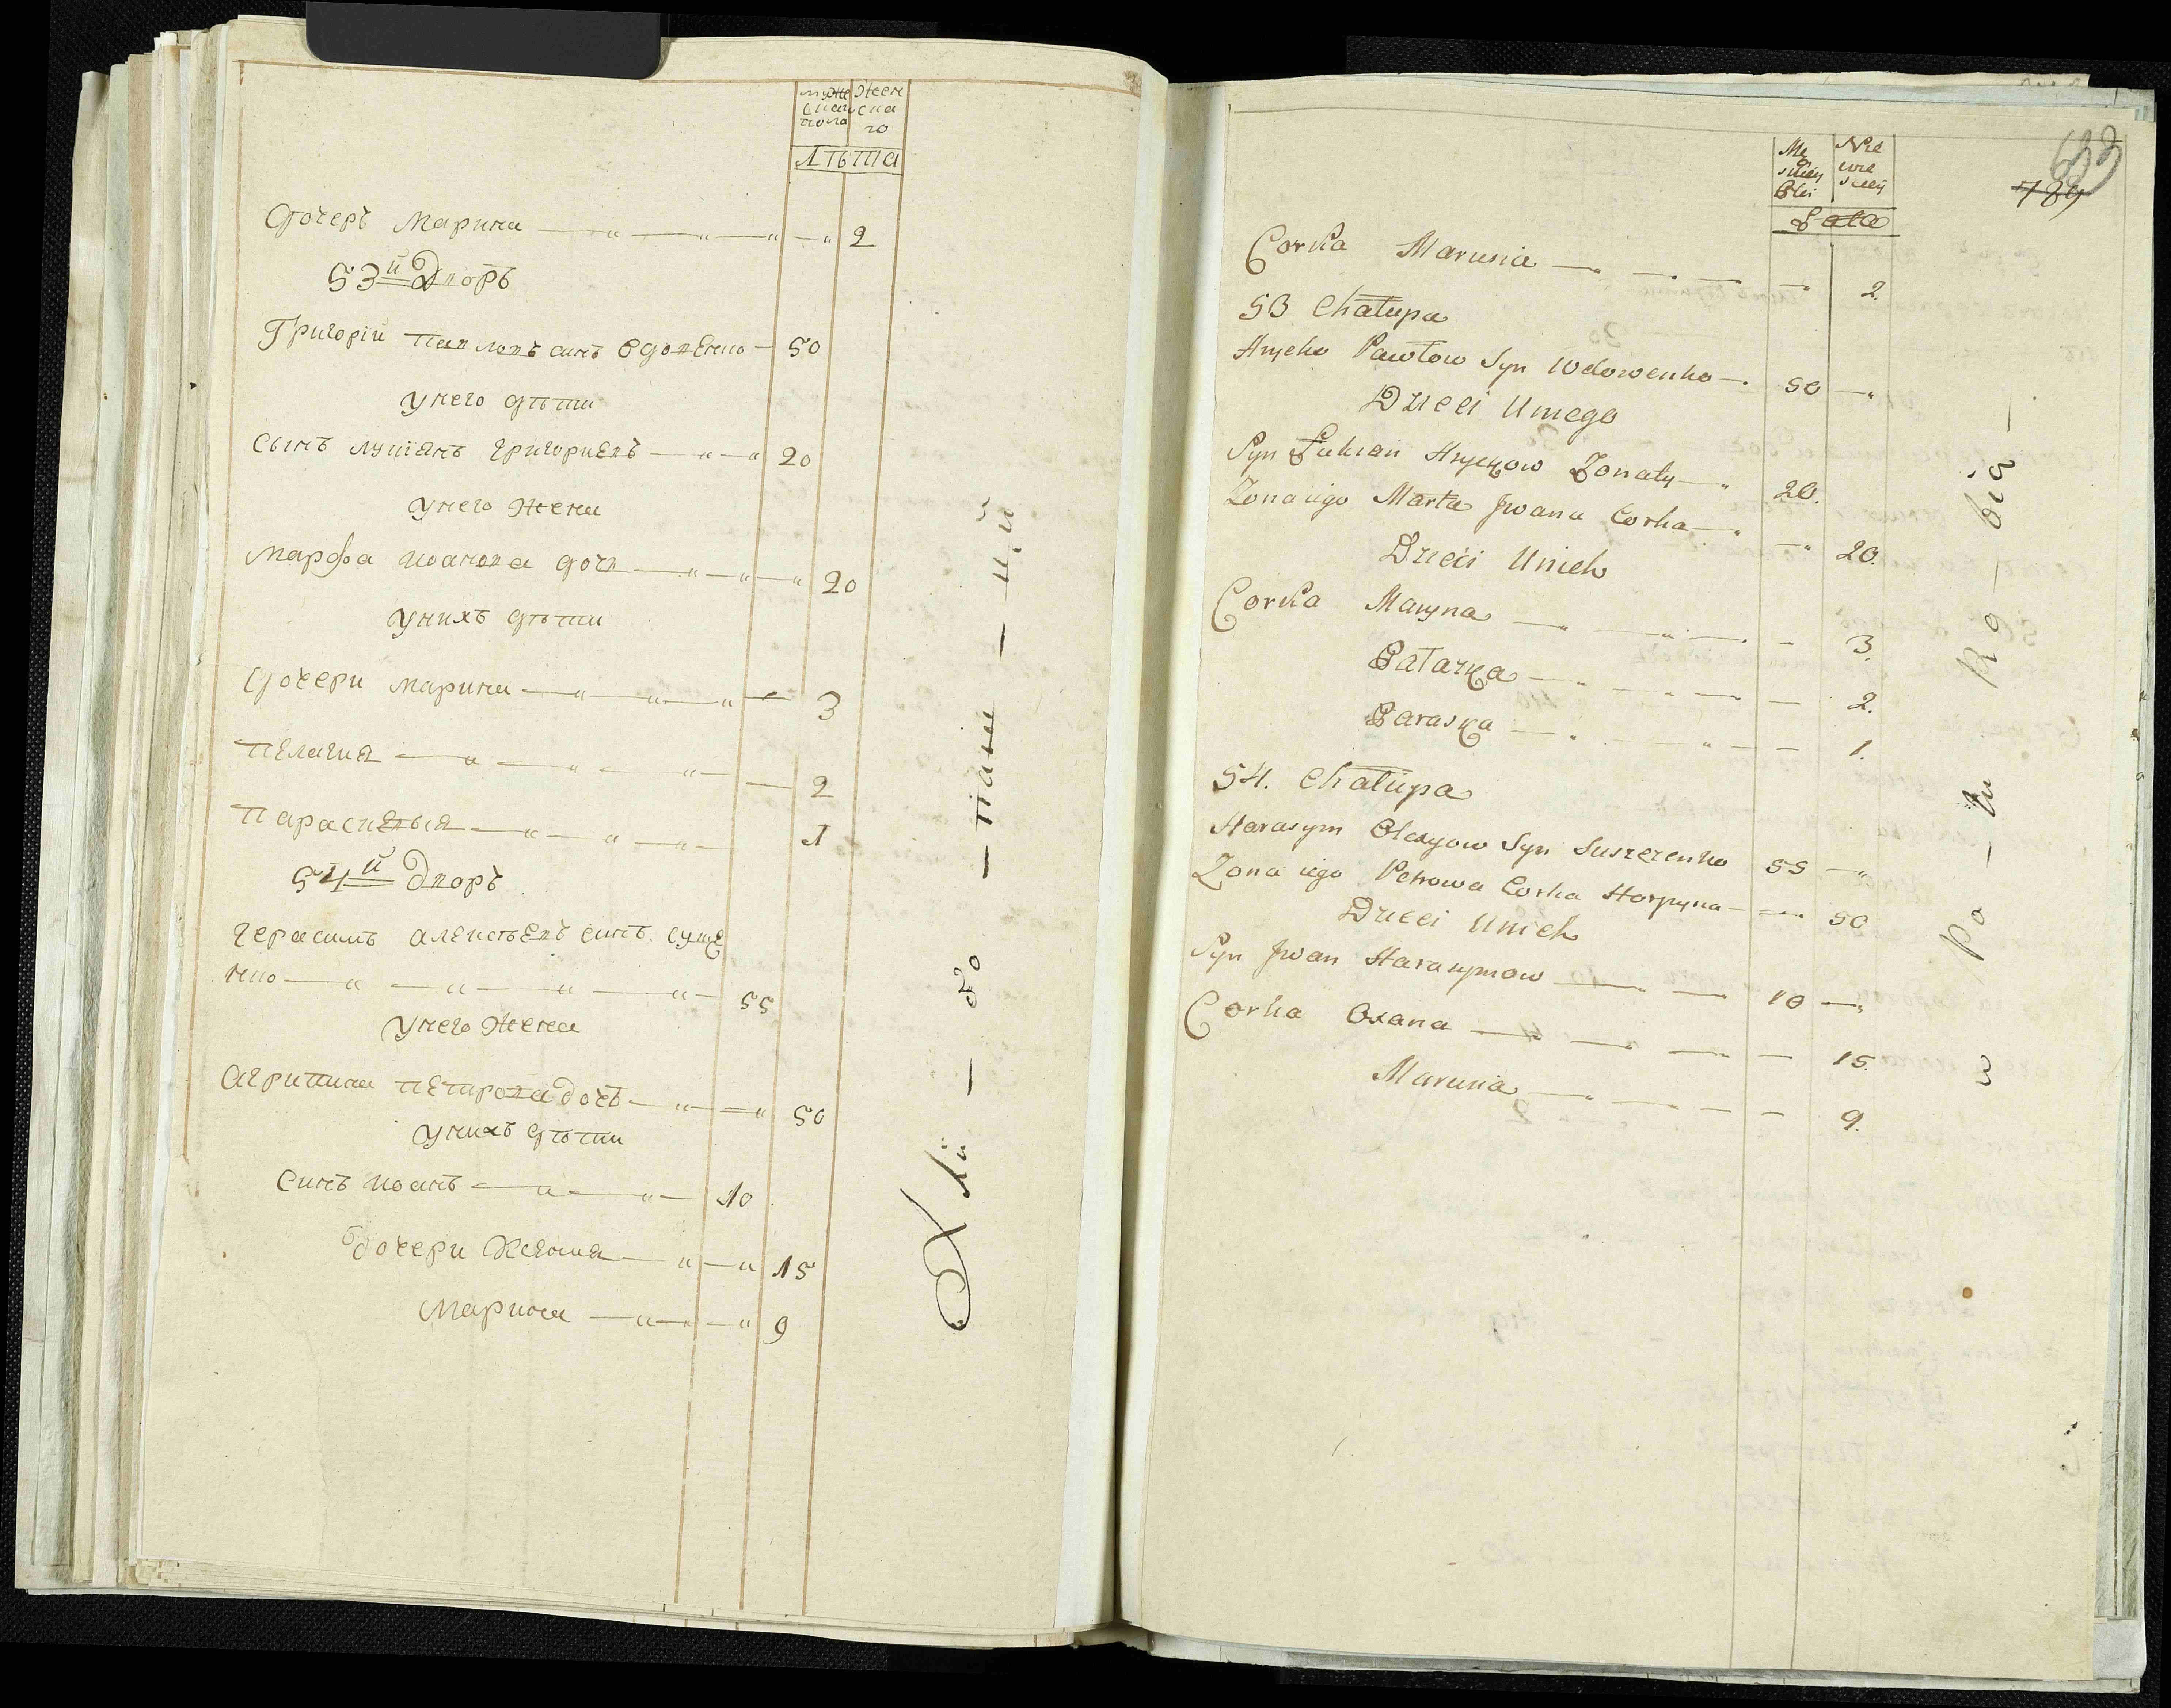 муже Жен
ска ска
пола го
Лѣта
Дочеръ Марина — „ — „ — „ — „ 2
53й Дворъ
Григорій Павловъ синъ Вдовенко — 50
Унего дѣти
Сынъ Лукіянъ Григориевъ — „ — „ 20
Унего Жена
Марфа Иоанова дочь — „ — „ — „ 20
Унихъ дѣти
Дочери Марина — „ — „ — „ — 3
Пелагия — „ — „ — „ — 2
Параскевия — „ — „ — „ — 1
54й Дворъ
Герасимъ Алексѣевъ синъ Суще
нко — „ — „ — „ — „ — 55
Унего Жена
Агрипина Петрова дочъ — „ — „ 50
Унихъ дѣти
Синъ Иоанъ — „ — „ — 10
Дочери Ксения — „ — „ 15
Марина — „ — „ 9
— но — пан — ц,й
Me Nie
skiey wie
Płci skiey
Lata
633
789
Corka Marusia — „ — „ — — „ 2.
53 Chałupa
Hrycko Pawłow Syn Wdowenko — „ 50 — „
Dzieci Uniego
Syn Łukian Hryckow Zonaty — „ 20.
Zona iego Marta Jwana Corka — „ — „ 20.
Dzieci Unich
Corka Maryna — „ — „ — „ — 3.
Palazka — „ — „ — „ — 2.
Paraska — „ — „ — — 1.
54. Chałupa
Harasym Olexyow Syn Suszczenko 55 — „
Zona iego Petrowa Corka Horpyna — — „ 50
Dzieci Unich
Syn Jwan Harasymow — „ — 10 — „
Corka Oxana — „ — „ — „ — 15.
Marusia — „ — „ — — 9.